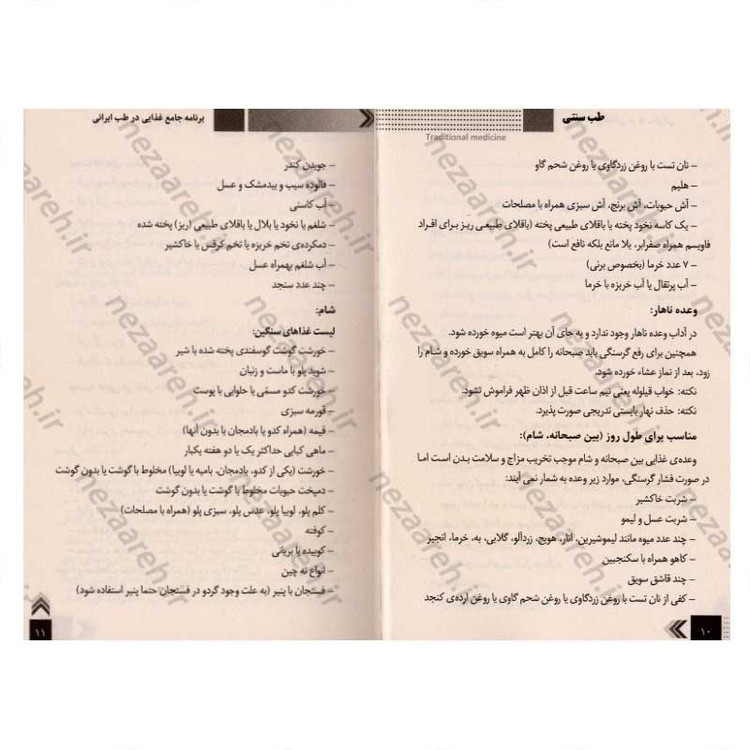 طب سنتی
Traditional medicine
– نان تست با روغن زردگاوی یا روغن شحم گاو
– هلیم
– آش حبوبات، آش برنج، آش سبزی همراه با مصلحات
– یک کاسه نخود پخته یا باقلای طبیعی پخته (باقلای طبیعی ریز برای افراد
فاویسم همراه صفرابر، بلا مانع بلکه نافع است)
– ۷ عدد خرما (بخصوص برنی)
– آب پرتقال یا آب خربزه با خرما
وعده ناهار:
در آداب وعده ناهار وجود ندارد و به جای آن بهتر است میوه خورده شود.
همچنین برای رفع گرسنگی باید صبحانه را کامل به همراه سویق خورده و شام را
زود، بعد از نماز عشاء خورده شود.
نکته: خواب قیلوله یعنی نیم ساعت قبل از اذان ظهر فراموش نشود.
نکته: حذف نهار بایستی تدریجی صورت پذیرد.
مناسب برای طول روز (بین صبحانه، شام):
وعده‌ی غذایی بین صبحانه و شام موجب تخریب مزاج و سلامت بدن است اما
در صورت فشار گرسنگی، موارد زیر وعده به شمار نمی آیند:
– شربت خاکشیر
– شربت عسل و لیمو
– چند عدد میوه مانند لیموشیرین، انار، هویج، زردآلو، گلابی، به، خرما، انجیر
– کاهو همراه با سکنجبین
– چند قاشق سویق
– کفی از نان تست با روغن زردگاوی یا روغن شحم گاوی یا روغن ارده‌ی کنجد
۱۰
برنامه جامع غذایی در طب ایرانی
– جویدن کندر
– فالوده سیب و بیدمشک و عسل
– آب کاسنی
– شلغم یا نخود یا بلال یا باقلای طبیعی (ریز) پخته شده
– دمکرده‌ی تخم خربزه یا تخم کرفس یا خاکشیر
– آب شلغم بهمراه عسل
– چند عدد سنجد
شام:
لیست غذاهای سنگین:
– خورشت گوشت گوسفندی پخته شده با شیر
– شوید پلو با ماست و زنیان
– خورشت کدو مسمّی یا حلوایی با پوست
– قورمه سبزی
– قیمه (همراه کدو یا بادمجان یا بدون آنها)
– ماهی کبابی حداکثر یک یا دو هفته یکبار
– خورشت (یکی از کدو، بادمجان، بامیه یا لوبیا) مخلوط با گوشت یا بدون گوشت
– دمپخت حبوبات مخلوط با گوشت یا بدون گوشت
– کلم پلو، لوبیا پلو، عدس پلو، سبزی پلو (همراه با مصلحات)
– کوفته
– کوبیده یا بریانی
– انواع ته چین
– فسنجان با پنیر (به علت وجود گردو در فسنجان حتما پنیر استفاده شود)
۱۱
nezaareh.ir